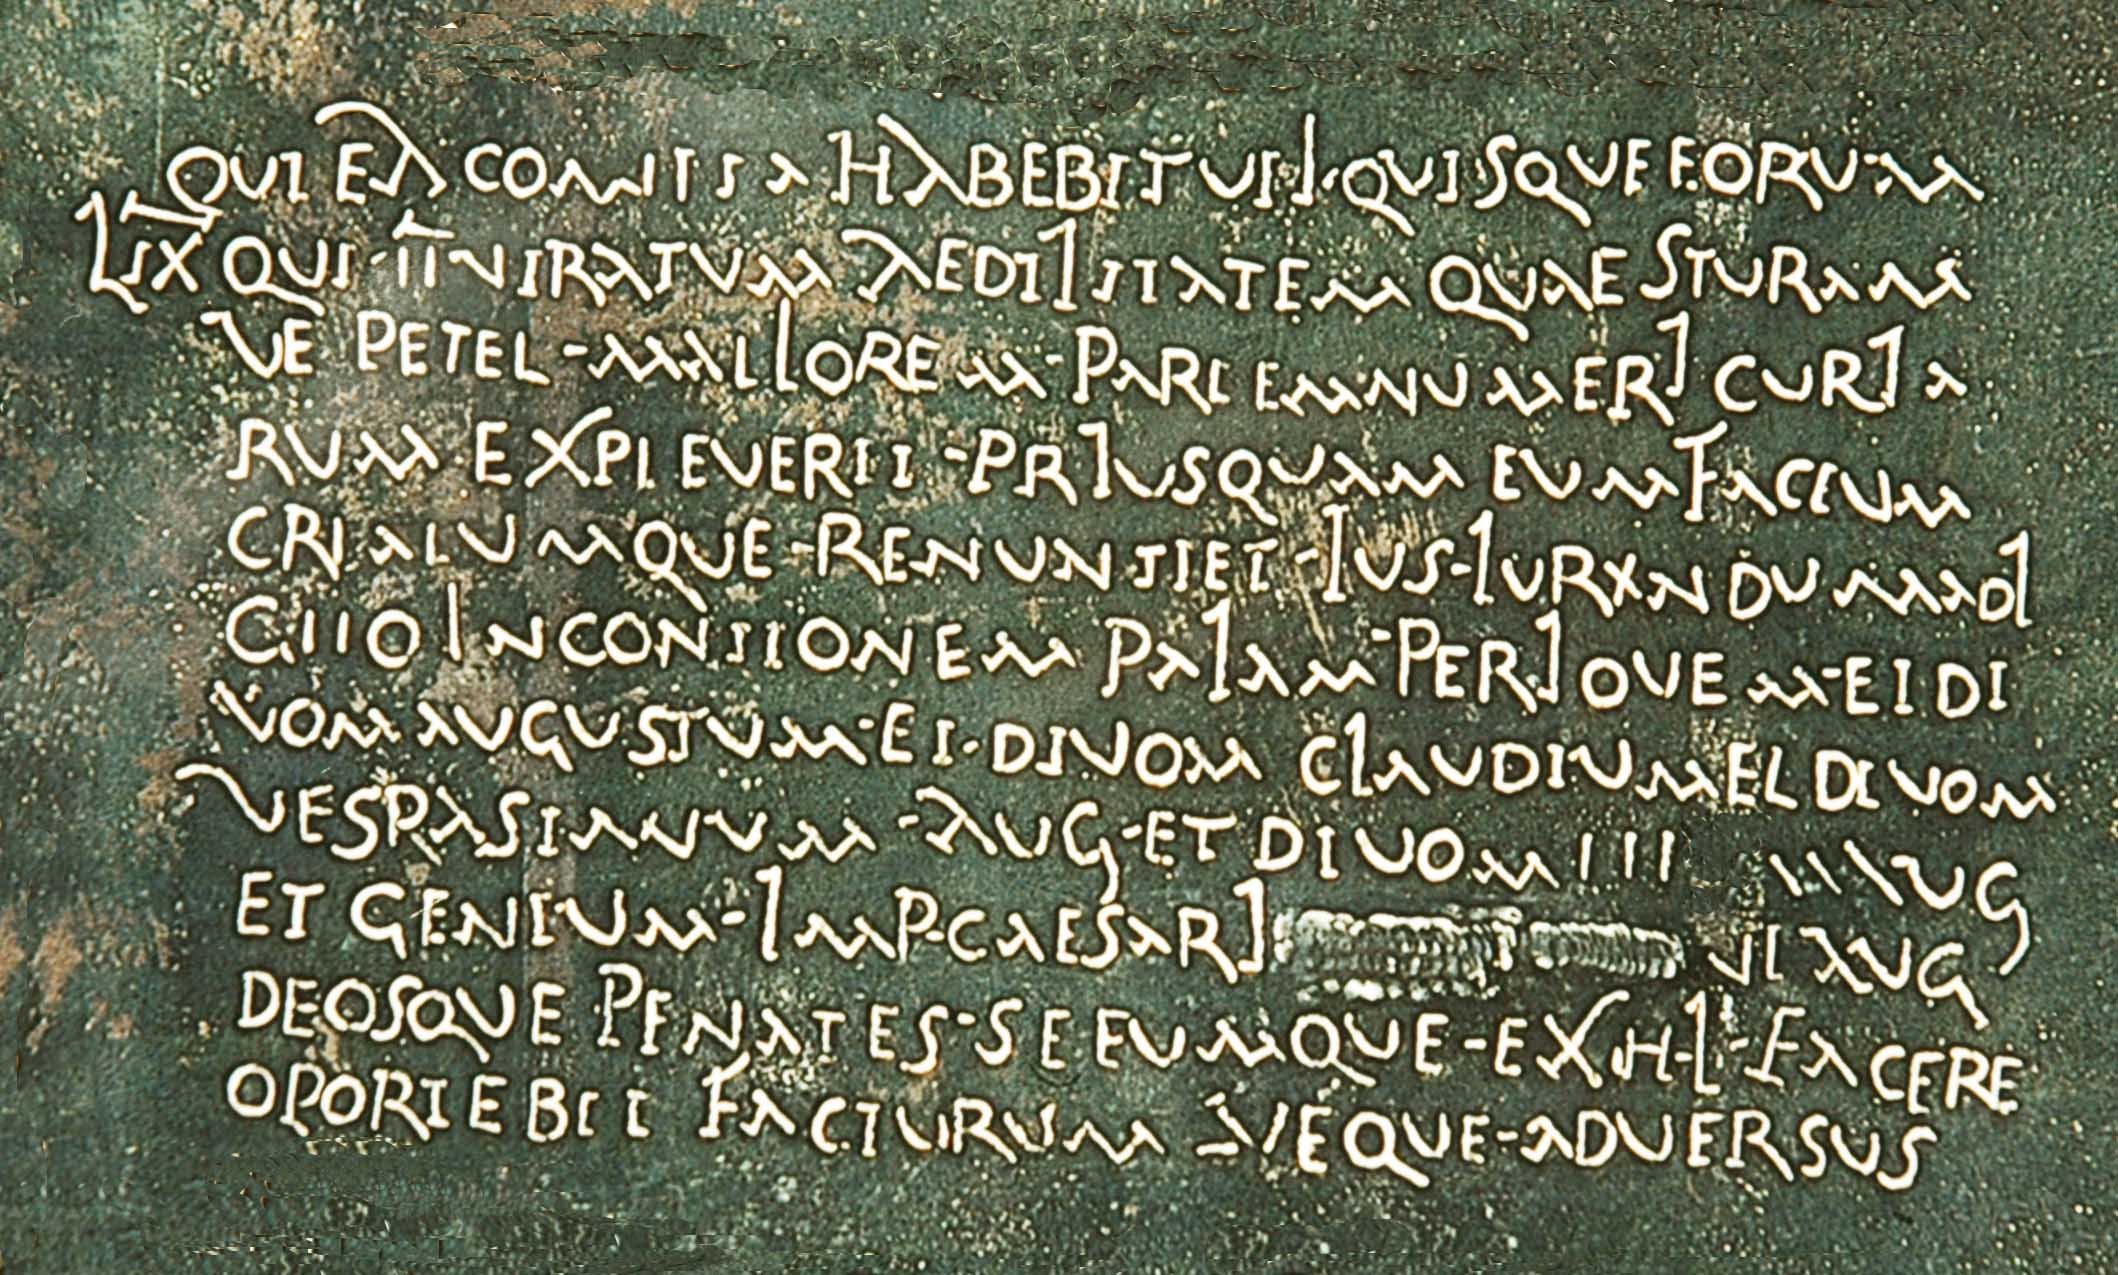 QUI EA COMITIA HABEBIT UTI QUISQUE EORUM
LIX QUI IIVIRATUM AEDILITATEM QUAESTURAM
VE PETET MAIIOREM PARTEM NUMERI CURIA
RUM EXPLEVERIT PRIUSQUAM EUM FACTUM
CREATUMQUE RENUNTIET IUS IURANDUM ADI
GITO IN CONTIONEM PALAM PER IOVEM ET DI
VOM AUGUSTUM ET DIVOM CLAUDIUM ET DIVOM
VESPASIANUM AUG ET DIVOM AUG
ET GENIUM IMP CAESARI AUG
DEOSQUE PENATES SE EUMQUE EX H L FACERE
OPORTEBIT FACTURUM NEQUE ADVERSUS